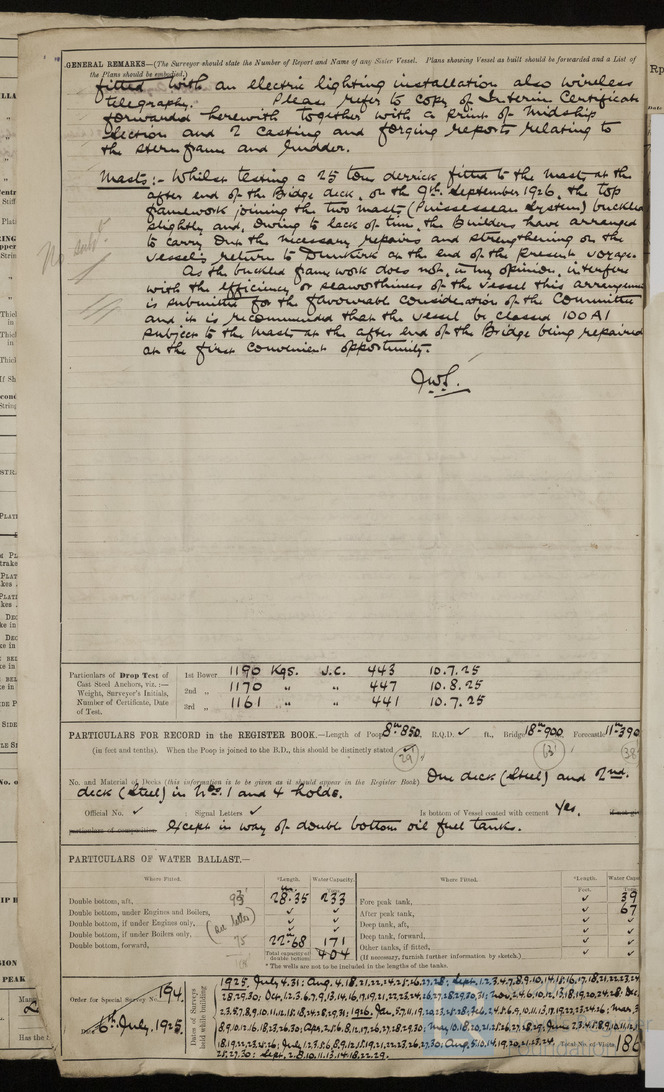 GENERAL REMARKS—(The Surveyor should state the Number of Report and Name of any Sister Vessel. Plans showing Vessel as built should be forwarded and a List of
the Plans should be embodied.)
fitted with an electric lighting installation also wireless
telegraphy. Please refer to copy of Interim Certificate
forwarded herewith together with a print of midship
section and 2 casting and forging reports relating to
the sternframe and rudder.
Masts:- Whilst testing a 25 ton derrick fitted to the mast at the
after end of the Bridge deck, on the 9th September 1926, the top
framework joining the two masts (Puissesseau System) buckled
slightly and, owing to lack of time, the Builders have arranged
to carry out the necessary repairs and strengthening on the
vessel's return to Dunkirk at the end of the present voyage.
As the buckled framework does not, in my opinion, interfere
with the efficiency or seaworthiness of the vessel this arrangement
is submitted for the favourable consideration of the Committee
and it is recommended that the vessel be classed 100A1
subject to the mast at the after end of the Bridge being repaired
at the first convenient opportunity.
J.W.S.
Particulars of Drop Test of
Cast Steel Anchors, viz.:—
Weight, Surveyor's Initials,
Number of Certificate, Date
of Test.
1st Bower 1190 Kgs. J.C. 443 10.7.25
2nd „ 1170 „ „ 447 10.8.25
3rd „ 1161 „ „ 441 10.7.25
PARTICULARS FOR RECORD in the REGISTER BOOK.—Length of Poop 8m850 R.Q.D. ✓ ft., Bridge 18m900 Forecastle 11m390
(in feet and tenths). When the Poop is joined to the B.D., this should be distinctly stated ✓ (29') (38
No. and Material of Decks (this information is to be given as it should appear in the Register Book) One deck (Steel) and 2nd.
deck (Steel) in Nos. 1 and 4 holds.
Official No. ✓ : Signal Letters ✓ Is bottom of Vessel coated with cement Yes.
particulars of composition Except in way of double bottom oil fuel tanks.
PARTICULARS OF WATER BALLAST.—
Where Fitted. *Length. Water Capacity. Where Fitted. *Length. Water Capa
Feet. Tons.
Double bottom, aft, 93' 28.35 233 Fore peak tank, ✓ 39
Double bottom, under Engines and Boilers, ✓ ✓ After peak tank, ✓ 67
Double bottom, if under Engines only, ✓ ✓ Deep tank, aft, ✓ ✓
Double bottom, if under Boilers only, ✓ ✓ Deep tank, forward, ✓ ✓
Double bottom, forward, 75 22.68 171 Other tanks, if fitted, ✓ ✓
Total capacity of double bottom 404 (If necessary, furnish further information by sketch.)
* The wells are not to be included in the lengths of the tanks.
Order for Special Survey No. 194.
Date 6th July, 1925.
Dates of Surveys held while building
1925. July 4.31; Aug. 4.18.21.22.24.25.26.27.28; Sept. 1.2.3.4.7.8.9.10.14.15.16.17.18.21.22.23.24
Total No. of Visits 186